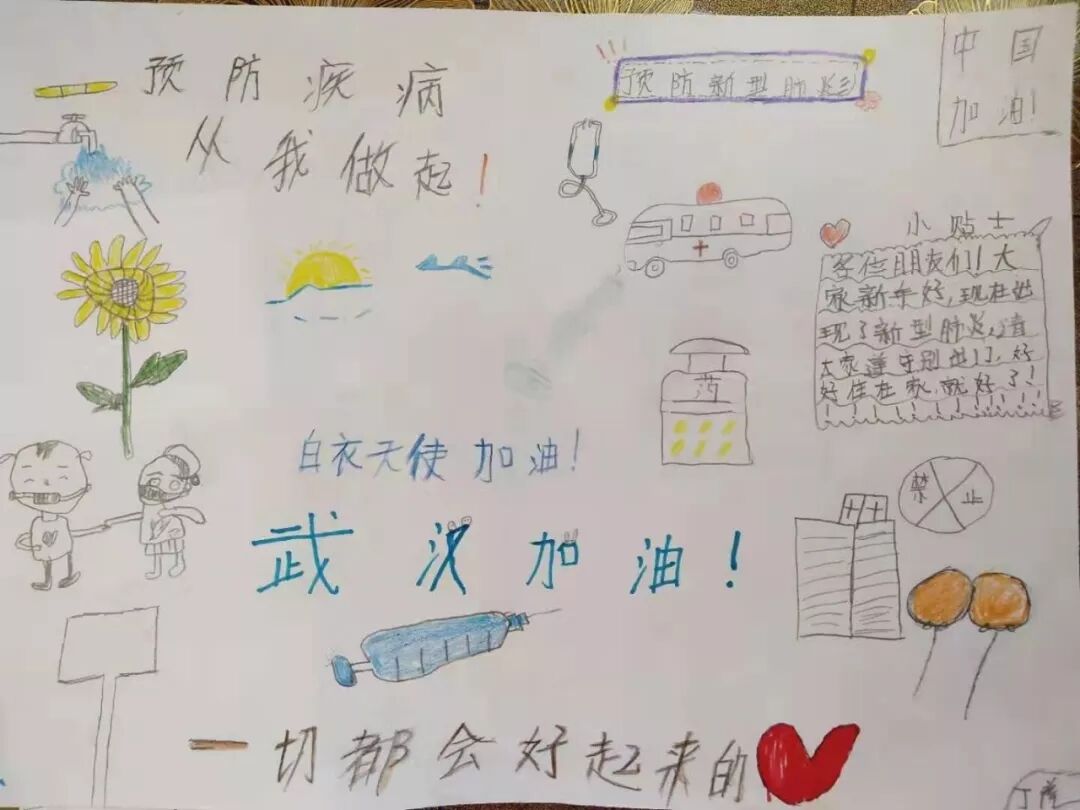 预防疾病
从我做起！
预防新型肺炎
中国
加油！
小贴士
各位朋友们！大
家新年好，现在出
现了新型肺炎，请
大家遵守别出门，好
好住在家，就好了！
！！！！！！！！！！
药
白衣天使加油！
禁止
武汉加油！
一切都会好起来的